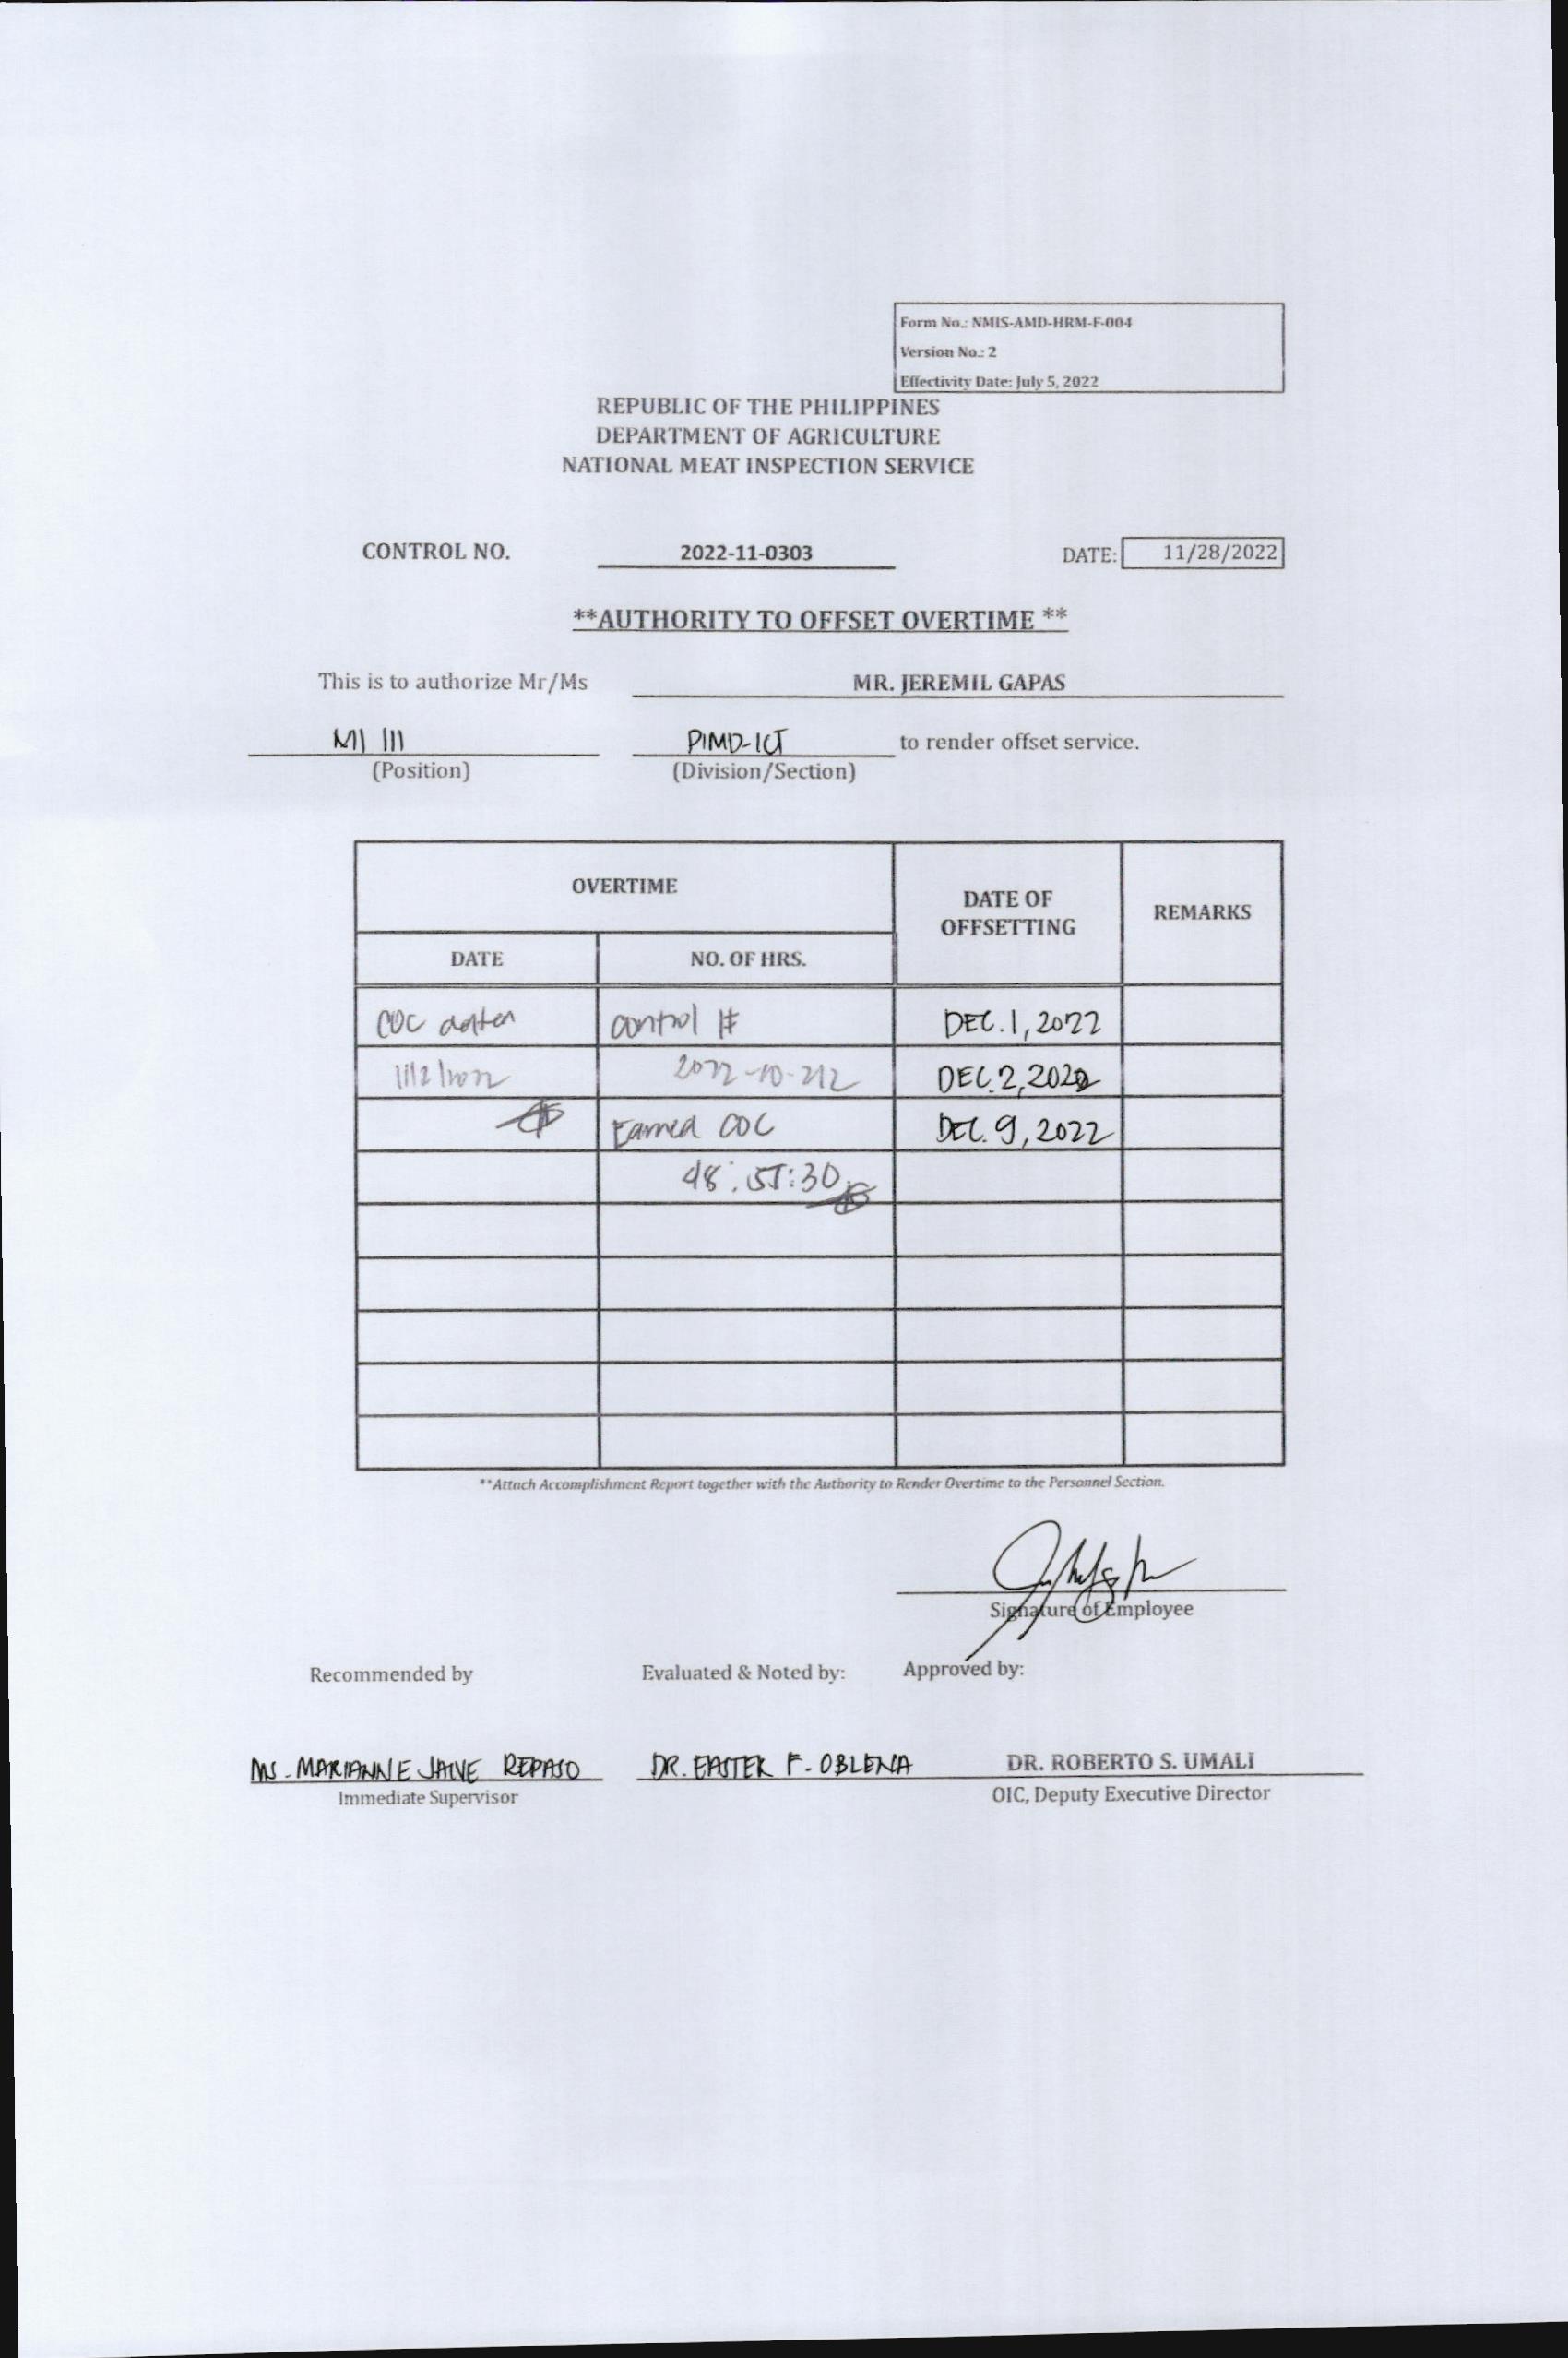 Form No.: NMIS-AMD-HRM-F-004
Version No.: 2
Effectivity Date: July 5, 2022
REPUBLIC OF THE PHILIPPINES
DEPARTMENT OF AGRICULTURE
NATIONAL MEAT INSPECTION SERVICE
CONTROL NO. 2022-11-0303 DATE: 11/28/2022
**AUTHORITY TO OFFSET OVERTIME **
This is to authorize Mr/Ms MR. JEREMIL GAPAS
MI III PIMD-ICT to render offset service.
(Position) (Division/Section)
OVERTIME DATE OF OFFSETTING REMARKS
DATE NO. OF HRS.
COC control # DEC. 1, 2022
11/2/2022 2022-10-212 DEC. 2, 2022
Earned COC DEC. 9, 2022
48:55:30
**Attach Accomplishment Report together with the Authority to Render Overtime to the Personnel Section.
Signature of Employee
Recommended by Evaluated & Noted by: Approved by:
MS. MARIANNE REPASO DR. EASTER F. OBLENA DR. ROBERTO S. UMALI
Immediate Supervisor OIC, Deputy Executive Director